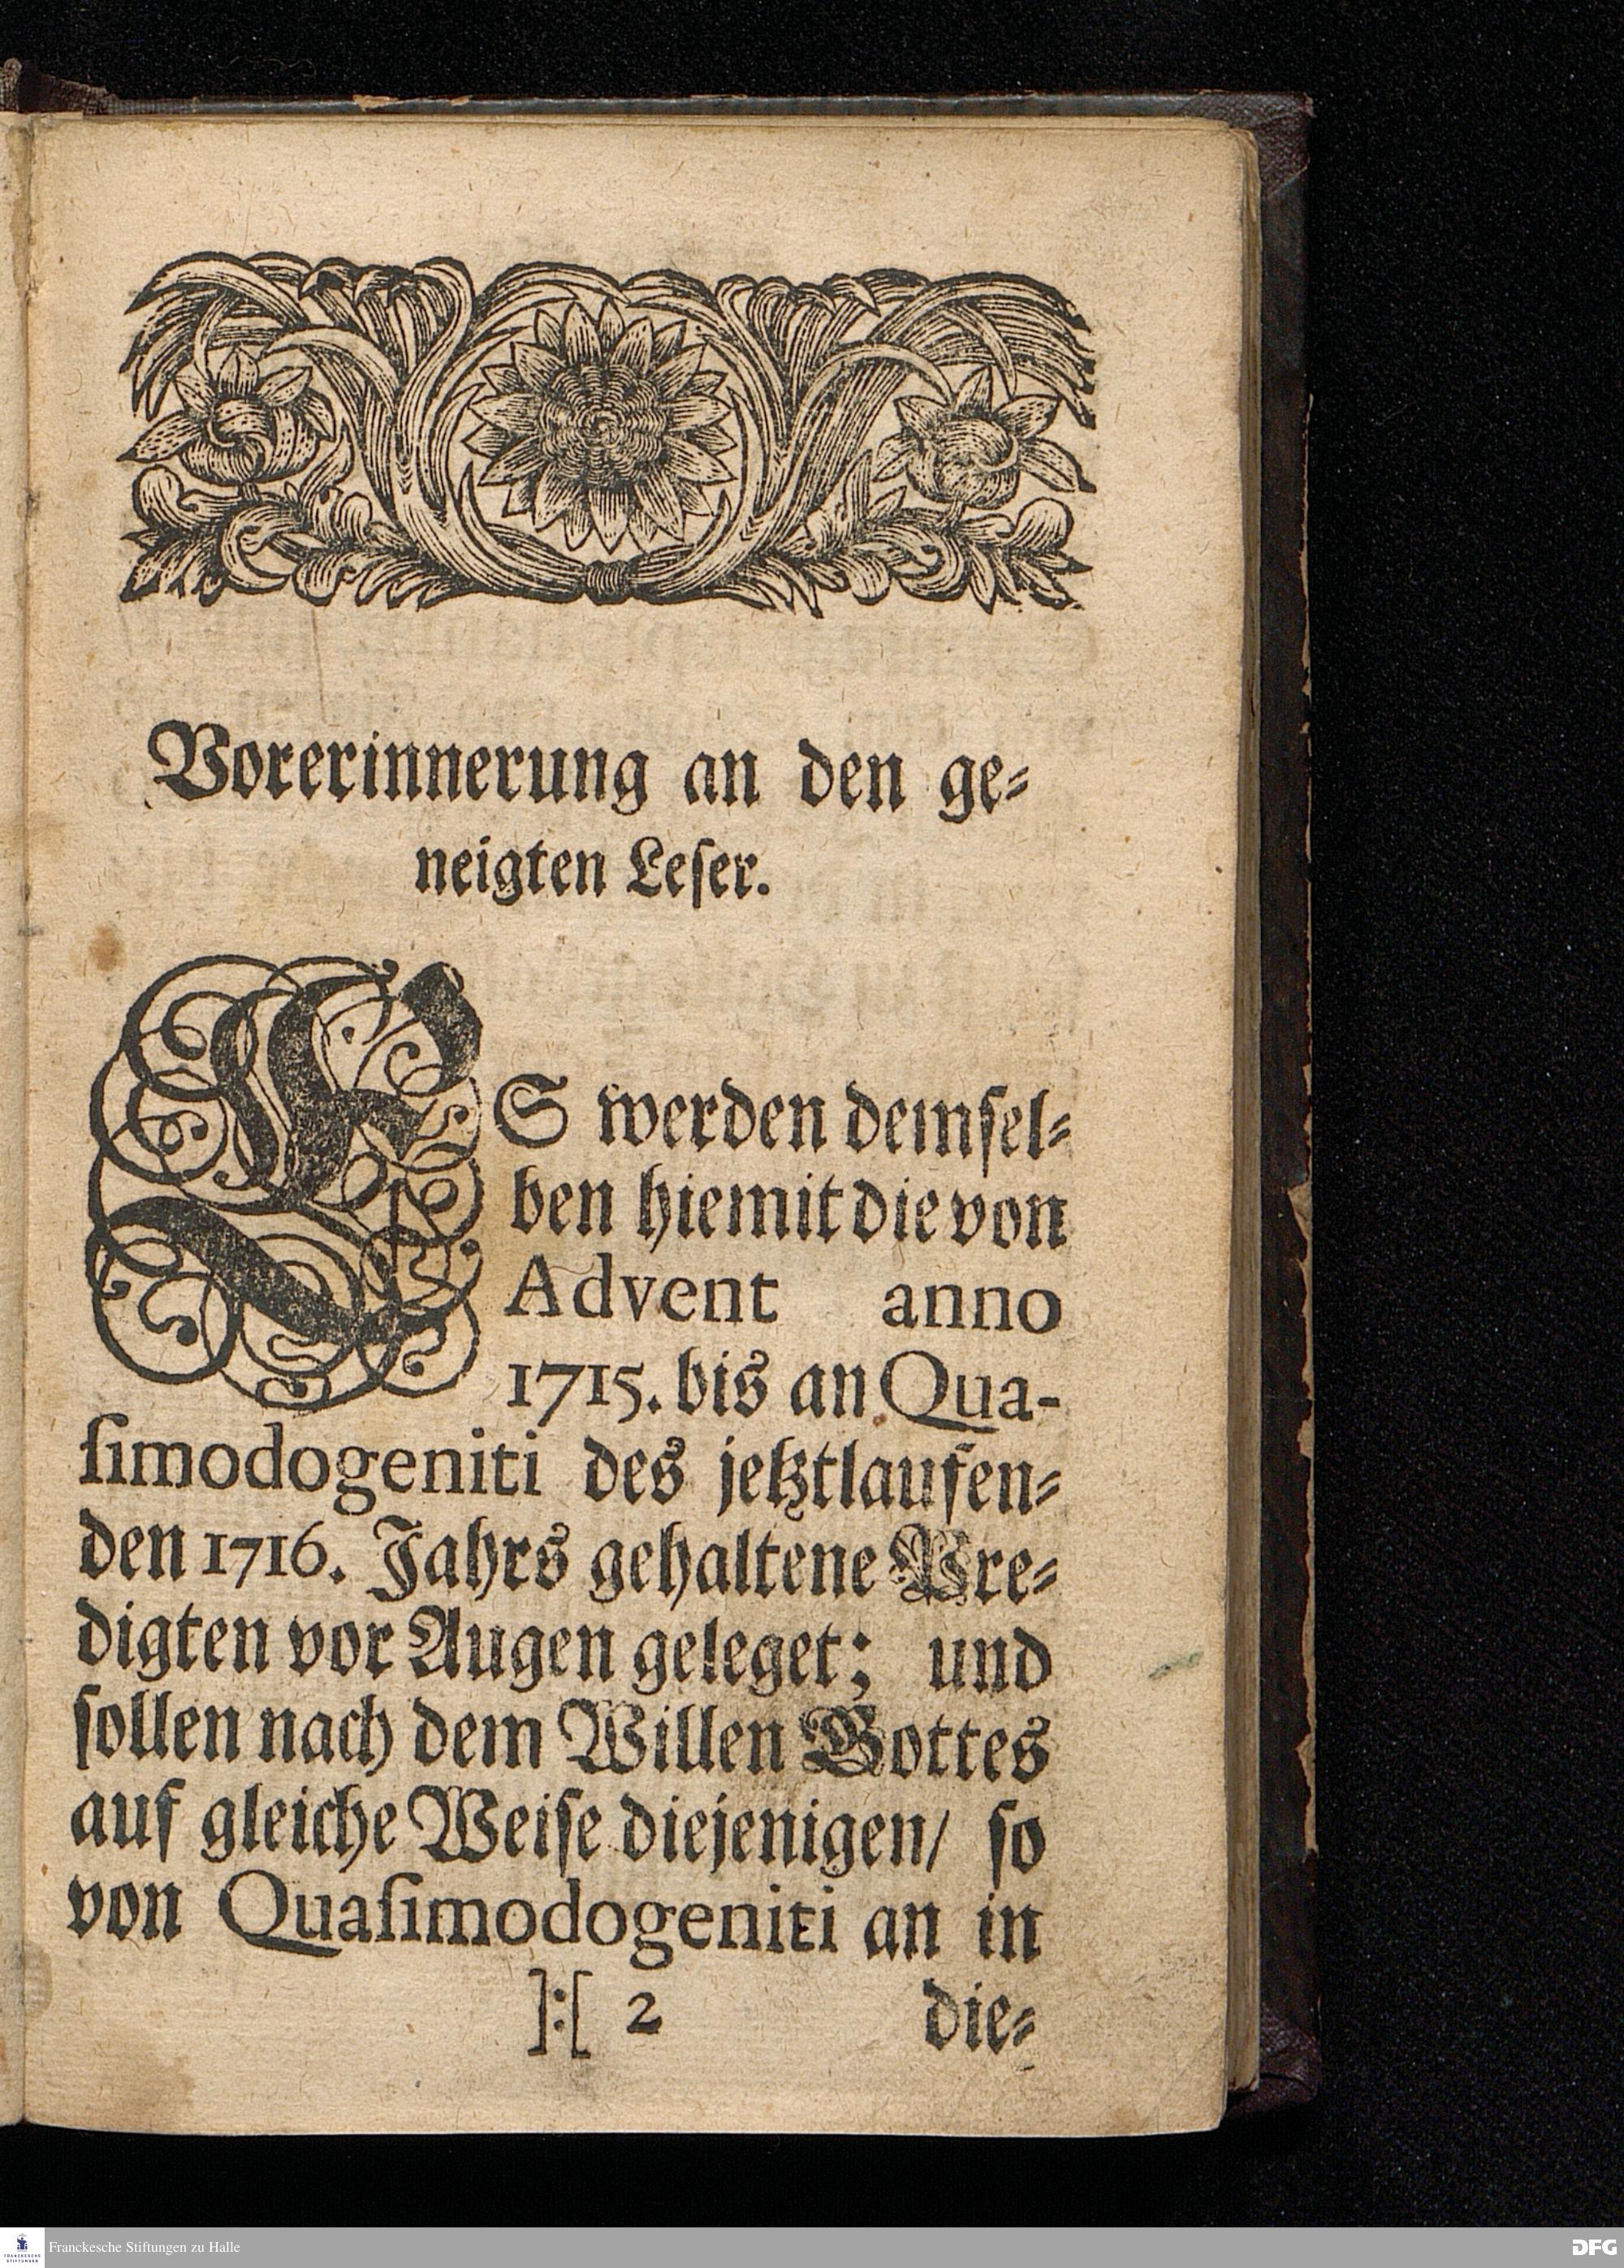 Vorerinnerung an den ge⸗
neigten Leſer.
ES werden demſel⸗
ben hiemit die von
Advent anno
1715. bis an Qua-
ſimodogeniti des jetztlaufen⸗
den 1716. Jahrs gehaltene Pre⸗
digten vor Augen geleget; und
ſollen nach dem Willen Gottes
auf gleiche Weiſe diejenigen/ ſo
von Quaſimodogeniti an in
]:[ 2 die⸗
FRANCKESCHE
STIFTUNGEN
Franckesche Stiftungen zu Halle
DFG